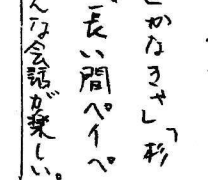 かなさやし「杉
長い間ペイペ
んな会話が楽しい。